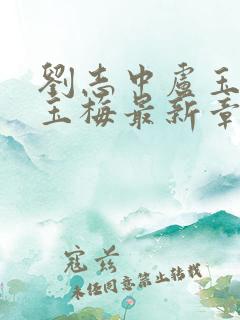 劉志中盧玉
玉梅最新章
寇茲
未経同意禁止转载